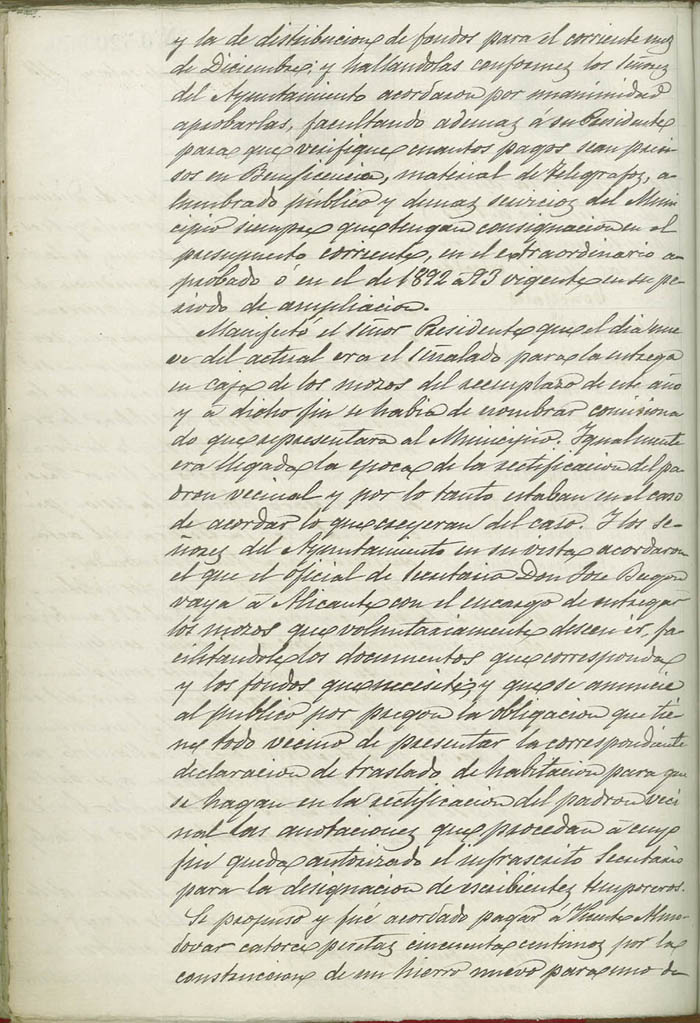 y la de distribucion de fondos para el corriente mes
de Diciembre; y hallandolas conformes los Señores
del Ayuntamiento acordaron por unanimidad
aprobarlas, facultando ademas á su Presidente
para que verifique cuantos pagos sean preci-
sos en Beneficencia, material de telegrafos, a-
lumbrado público y demas servicios del Muni-
cipio siempre que tengan consignacion en el
presupuesto corriente, en el extraordinario a-
probado ó en el de 1892 á 93 vigente en su pe-
riodo de ampliacion.
Manifestó el señor Presidente que el dia nue-
ve del actual era el señalado para la entrega
en caja de los mozos del reemplazo de este año
y á dicho fin se habia de nombrar comisiona-
do que representara al Municipio. Igualmente
era llegada la epoca de la rectificacion del pa-
dron vecinal y por lo tanto estaban en el caso
de acordar lo que creyeran del caso. Y los Se-
ñores del Ayuntamiento en su vista acordaron
el que el oficial de Secretaria Don Jose
vaya á Alicante con el encargo de entregar
los mozos que voluntariamente deseen ir, fa-
cilitandole los documentos que corresponda
y los fondos que necesite; y que se anuncie
al publico por pregon la obligacion que tie-
ne todo vecino de presentar la correspondiente
declaracion de traslado de habitacion para que
se hagan en la rectificacion del padron veci-
nal las anotaciones que procedan á cuyo
fin queda autorizado el infrascrito Secretario
para la designacion de escribientes temporeros.
Se propuso y fué acordado pagar á Vicente Mun-
dovar catorce pesetas cincuenta centimos por la
construccion de un hierro nuevo para uno de